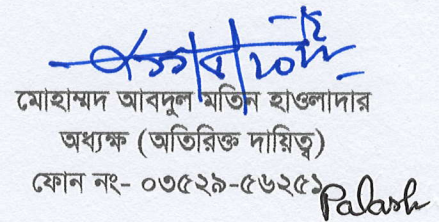 মোহাম্মদ আবদুল মতিন হাওলাদার
অধ্যক্ষ (অতিরিক্ত দায়িত্ব)
ফোন নং- ০৩৫২৯-৫৬২৫১
Palash